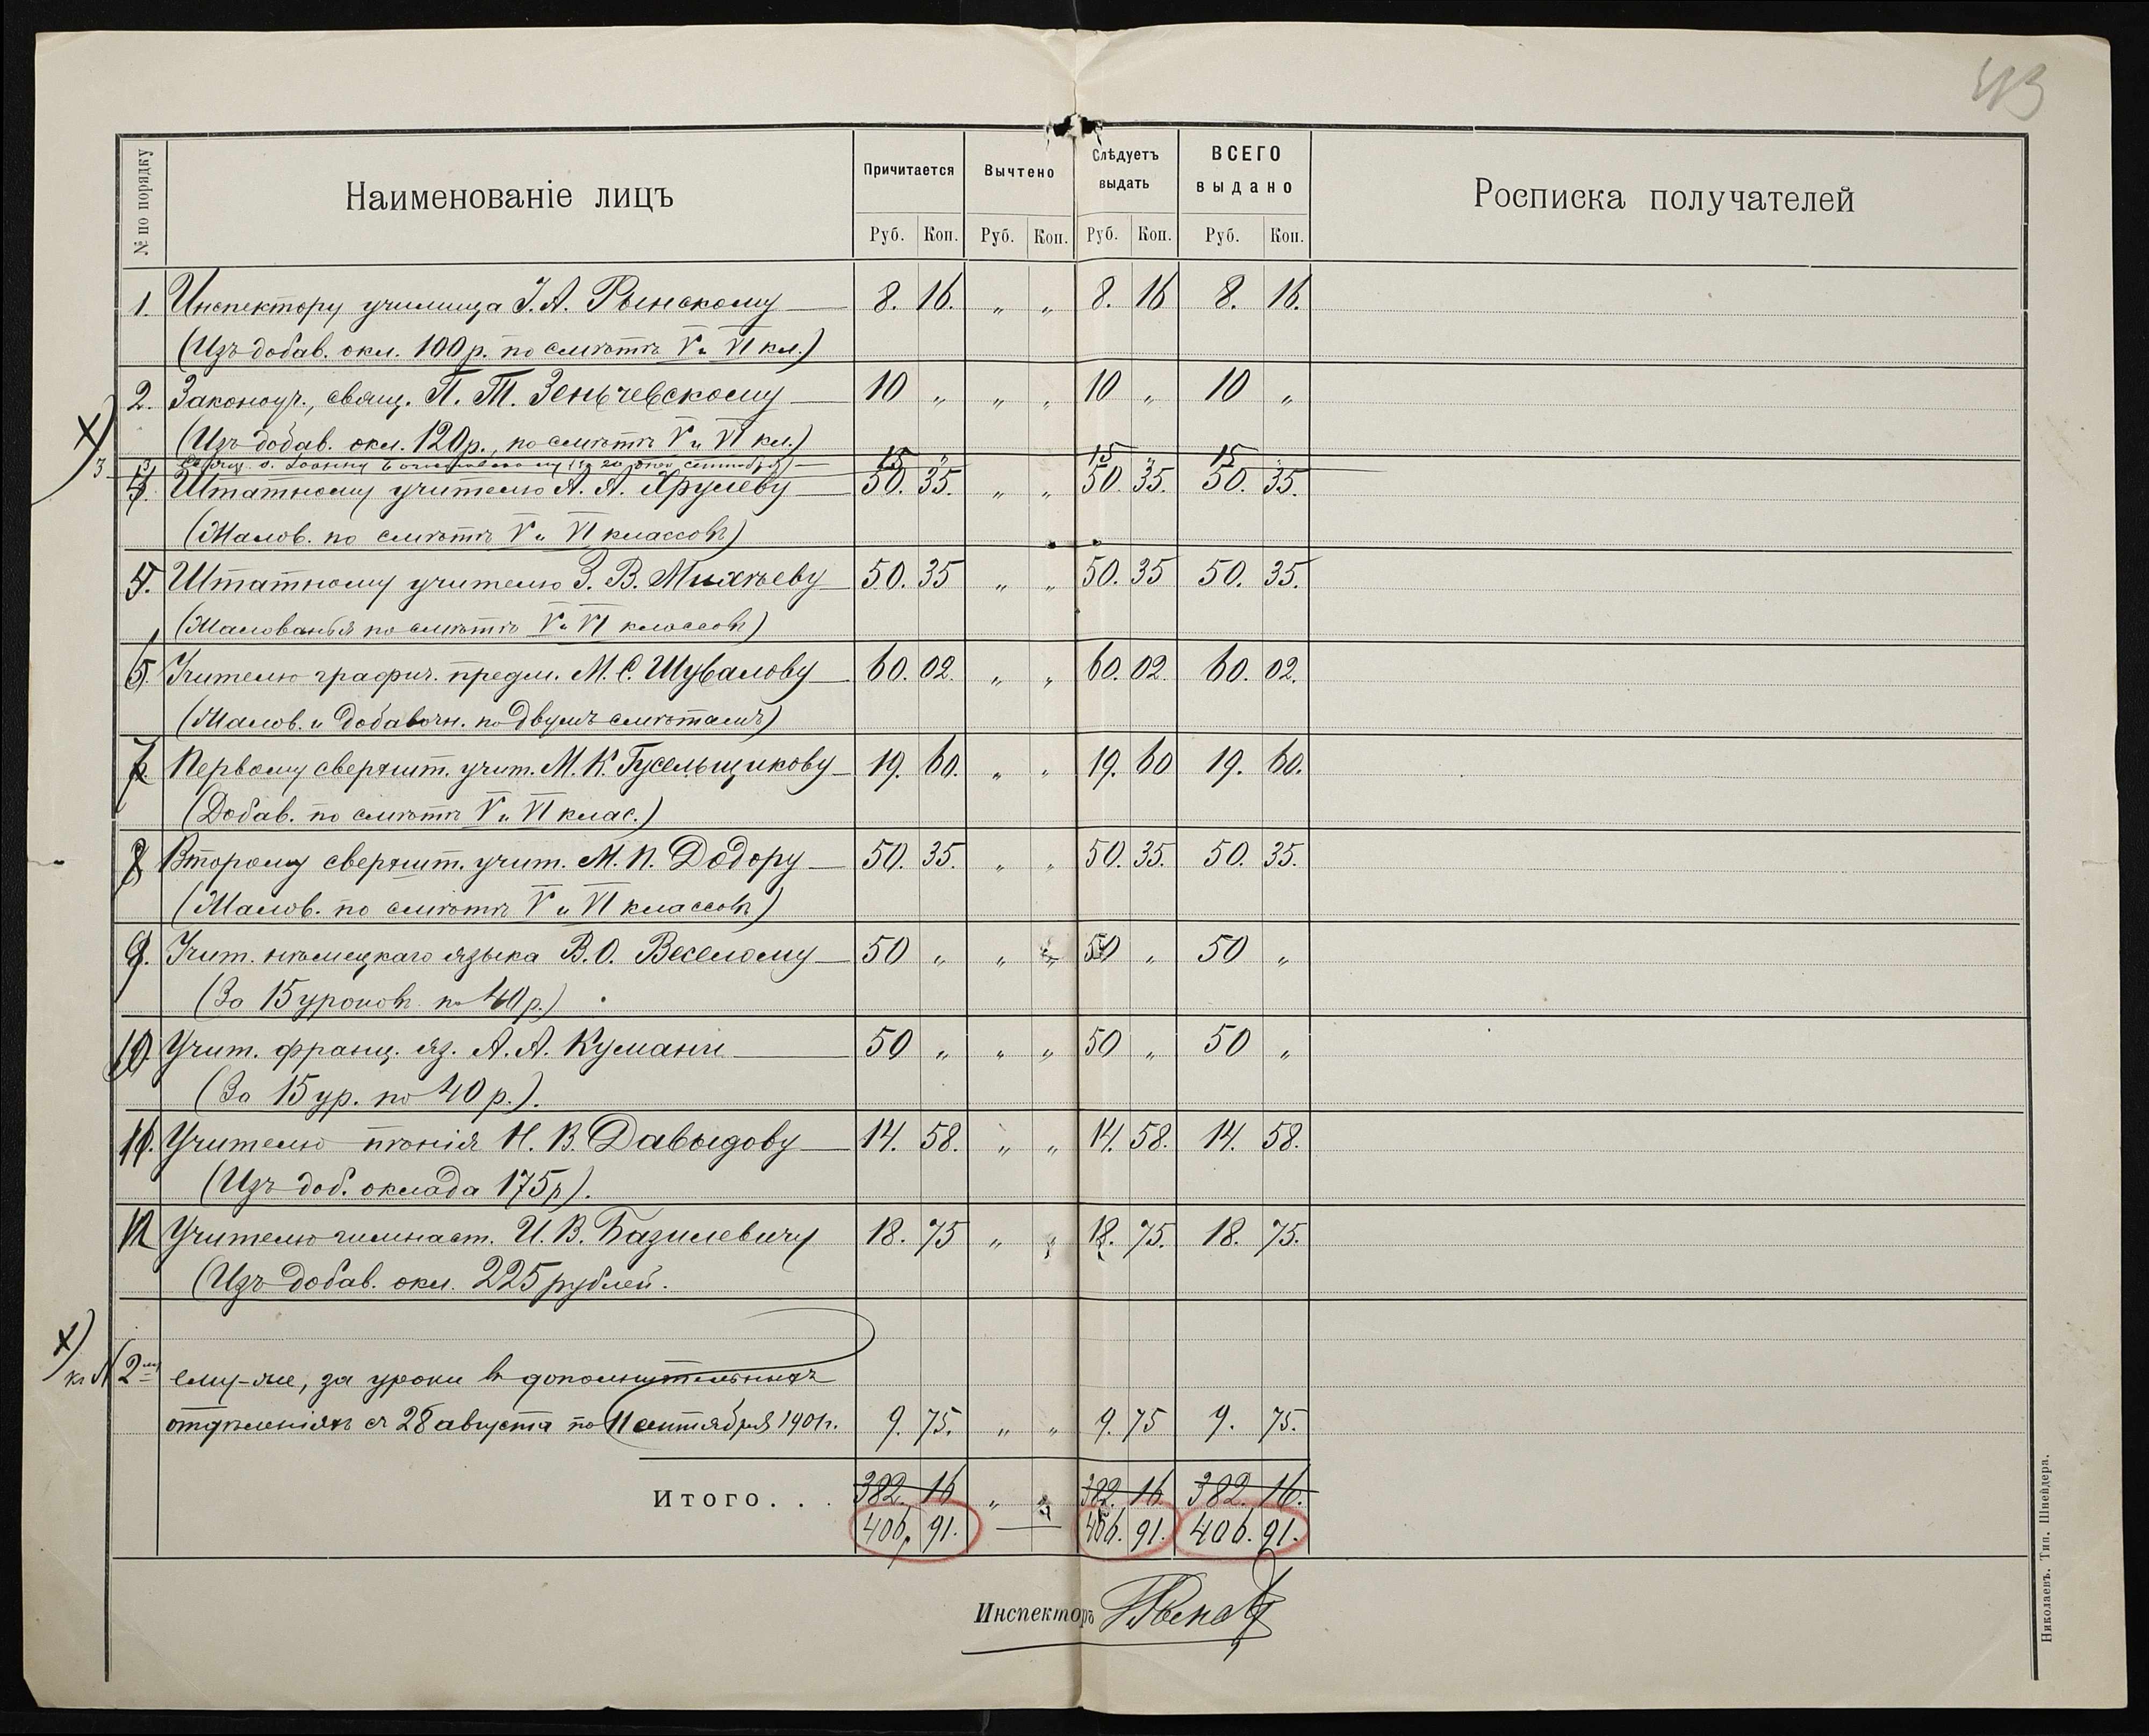 № по порядку
Наименованіе лицъ
Причитается
Вычтено
Слѣдуетъ выдать
ВСЕГО выдано
Росписка получателей
Руб. Коп. Руб. Коп. Руб. Коп. Руб. Коп.
1. Инспектору училища І. А. Рынскому — 8. 16. „ „ 8. 16 8. 16.
(Изъ добав. окл. 100 р. по смѣтѣ V и VI кл.)
2. Законоуч., свящ. П. Т. Зеньчевскому — 10 „ „ „ 10 „ 10 „
(Изъ добав. окл. 120 р., по смѣтѣ V и VI кл.)
3 Свящ. о. Іоанну (за 20 дней сентября) — 15 „ 15 „ 15 „
4. Штатному учителю А. А. Хрулеву 50. 35. „ „ 50. 35. 50. 35.
(Жалов. по смѣтѣ V и VI классовъ)
5. Штатному учителю З. В. Михѣеву 50. 35 „ „ 50. 35 50. 35.
(Жалованья по смѣтѣ V и VI классовъ)
6. Учителю графич. предм. М. С. Шувалову 60. 02. „ „ 60. 02. 60. 02.
(Жалов. и добавочн. по двумъ смѣтамъ)
7. Первому сверхшт. учит. М. К. Гусельщикову 19. 60. „ „ 19. 60 19. 60.
(Добав. по смѣтѣ V и VI клас.)
8 Второму сверхшт. учит. М. П. Додору — 50. 35. „ „ 50. 35. 50. 35.
(Жалов. по смѣтѣ V и VI классовъ)
9. Учит. нѣмецкаго языка В. О. Веселому — 50 „ „ „ 50 „ 50 „
(За 15 уроковъ по 40 р.)
10. Учит. франц. яз. А. А. Куманч — 50 „ „ „ 50 „ 50 „
(За 15 ур. по 40 р.).
11. Учителю пѣнія Н. В. Давыдову — 14. 58. „ „ 14. 58. 14. 58.
(Изъ доб. оклада 175 р).
12 Учителю гимнаст. И. В. Базилевичу 18. 75 „ „ 18. 75. 18. 75.
(Изъ добав. окл. 225 рублей.
х) къ № 2му ему-же, за уроки въ дополнительныхъ
отдѣленіяхъ съ 28 августа по 11 сентября 1901 г. 9. 75. „ „ 9. 75 9. 75.
Итого. . . 382. 16 „ „ 382. 16 382. 16.
406. 91. — 406. 91. 406. 91.
Инспекторъ
Николаевъ. Тип. Шнейдера.